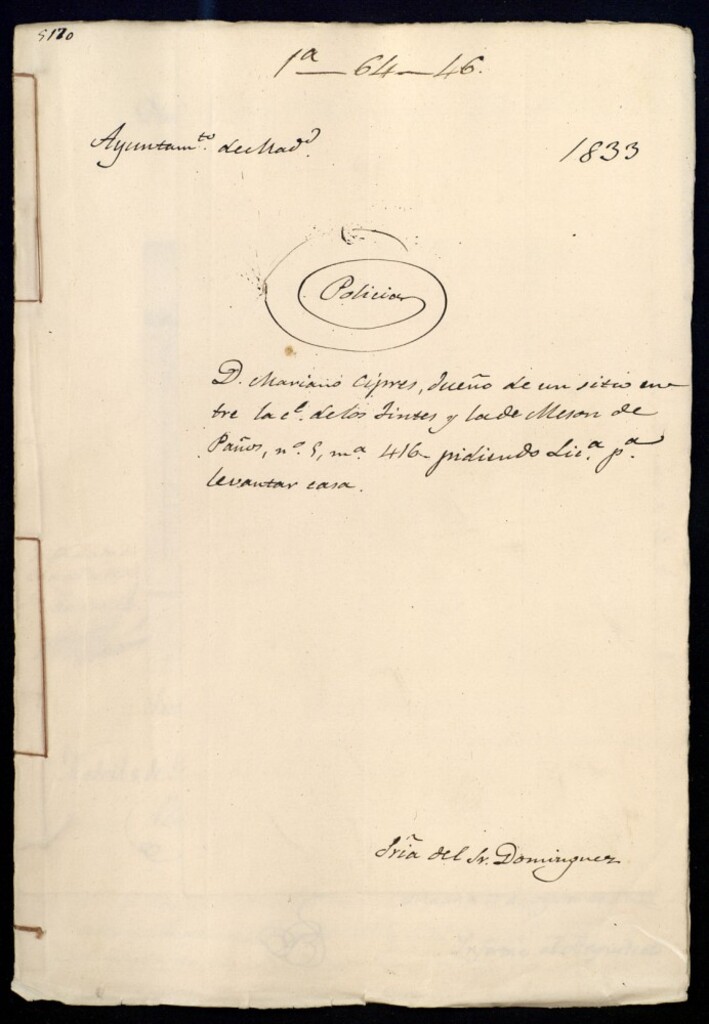 5170
1ª — 64 — 46.
Ayuntam.to de Mad.d
1833
Policia
D. Mariano Cipres, dueño de un sitio en-
tre la c.e de los Tintes y la de Meson de
Paños, n.o 5, m.a 416 pidiendo Lic.a p.a
levantar casa.
Sría del Sr. Dominguez